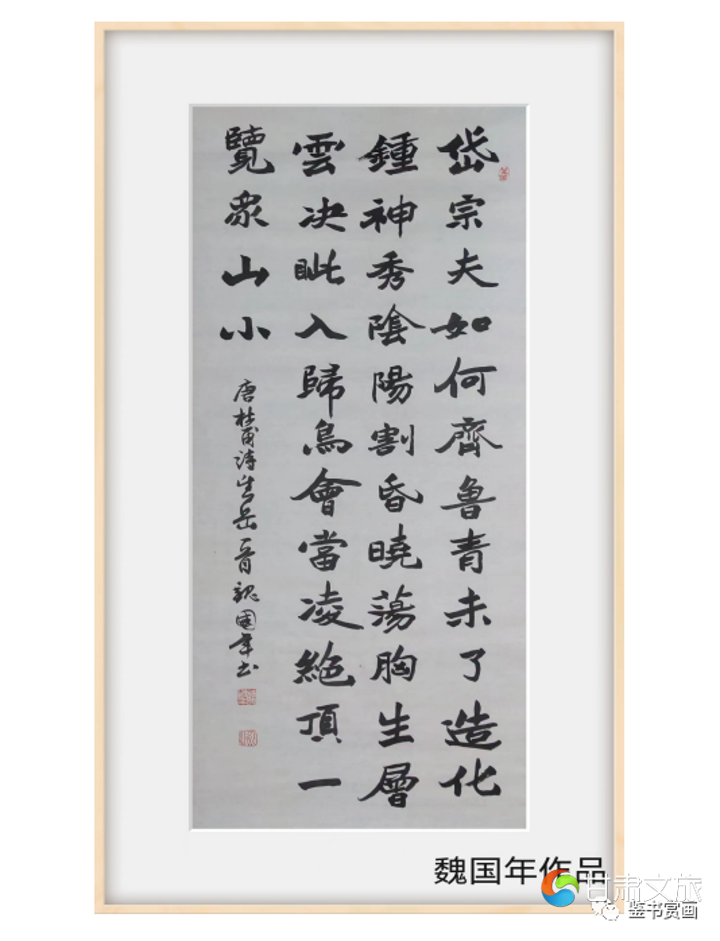 岱宗夫如何齊魯青未了造化
鍾神秀陰陽割昏曉蕩胸生層
雲決眦入歸鳥會當凌絶頂一
覽衆山小
唐杜甫詩望岳一首魏國年书
魏国年作品
甘肃文旅
鉴书赏画